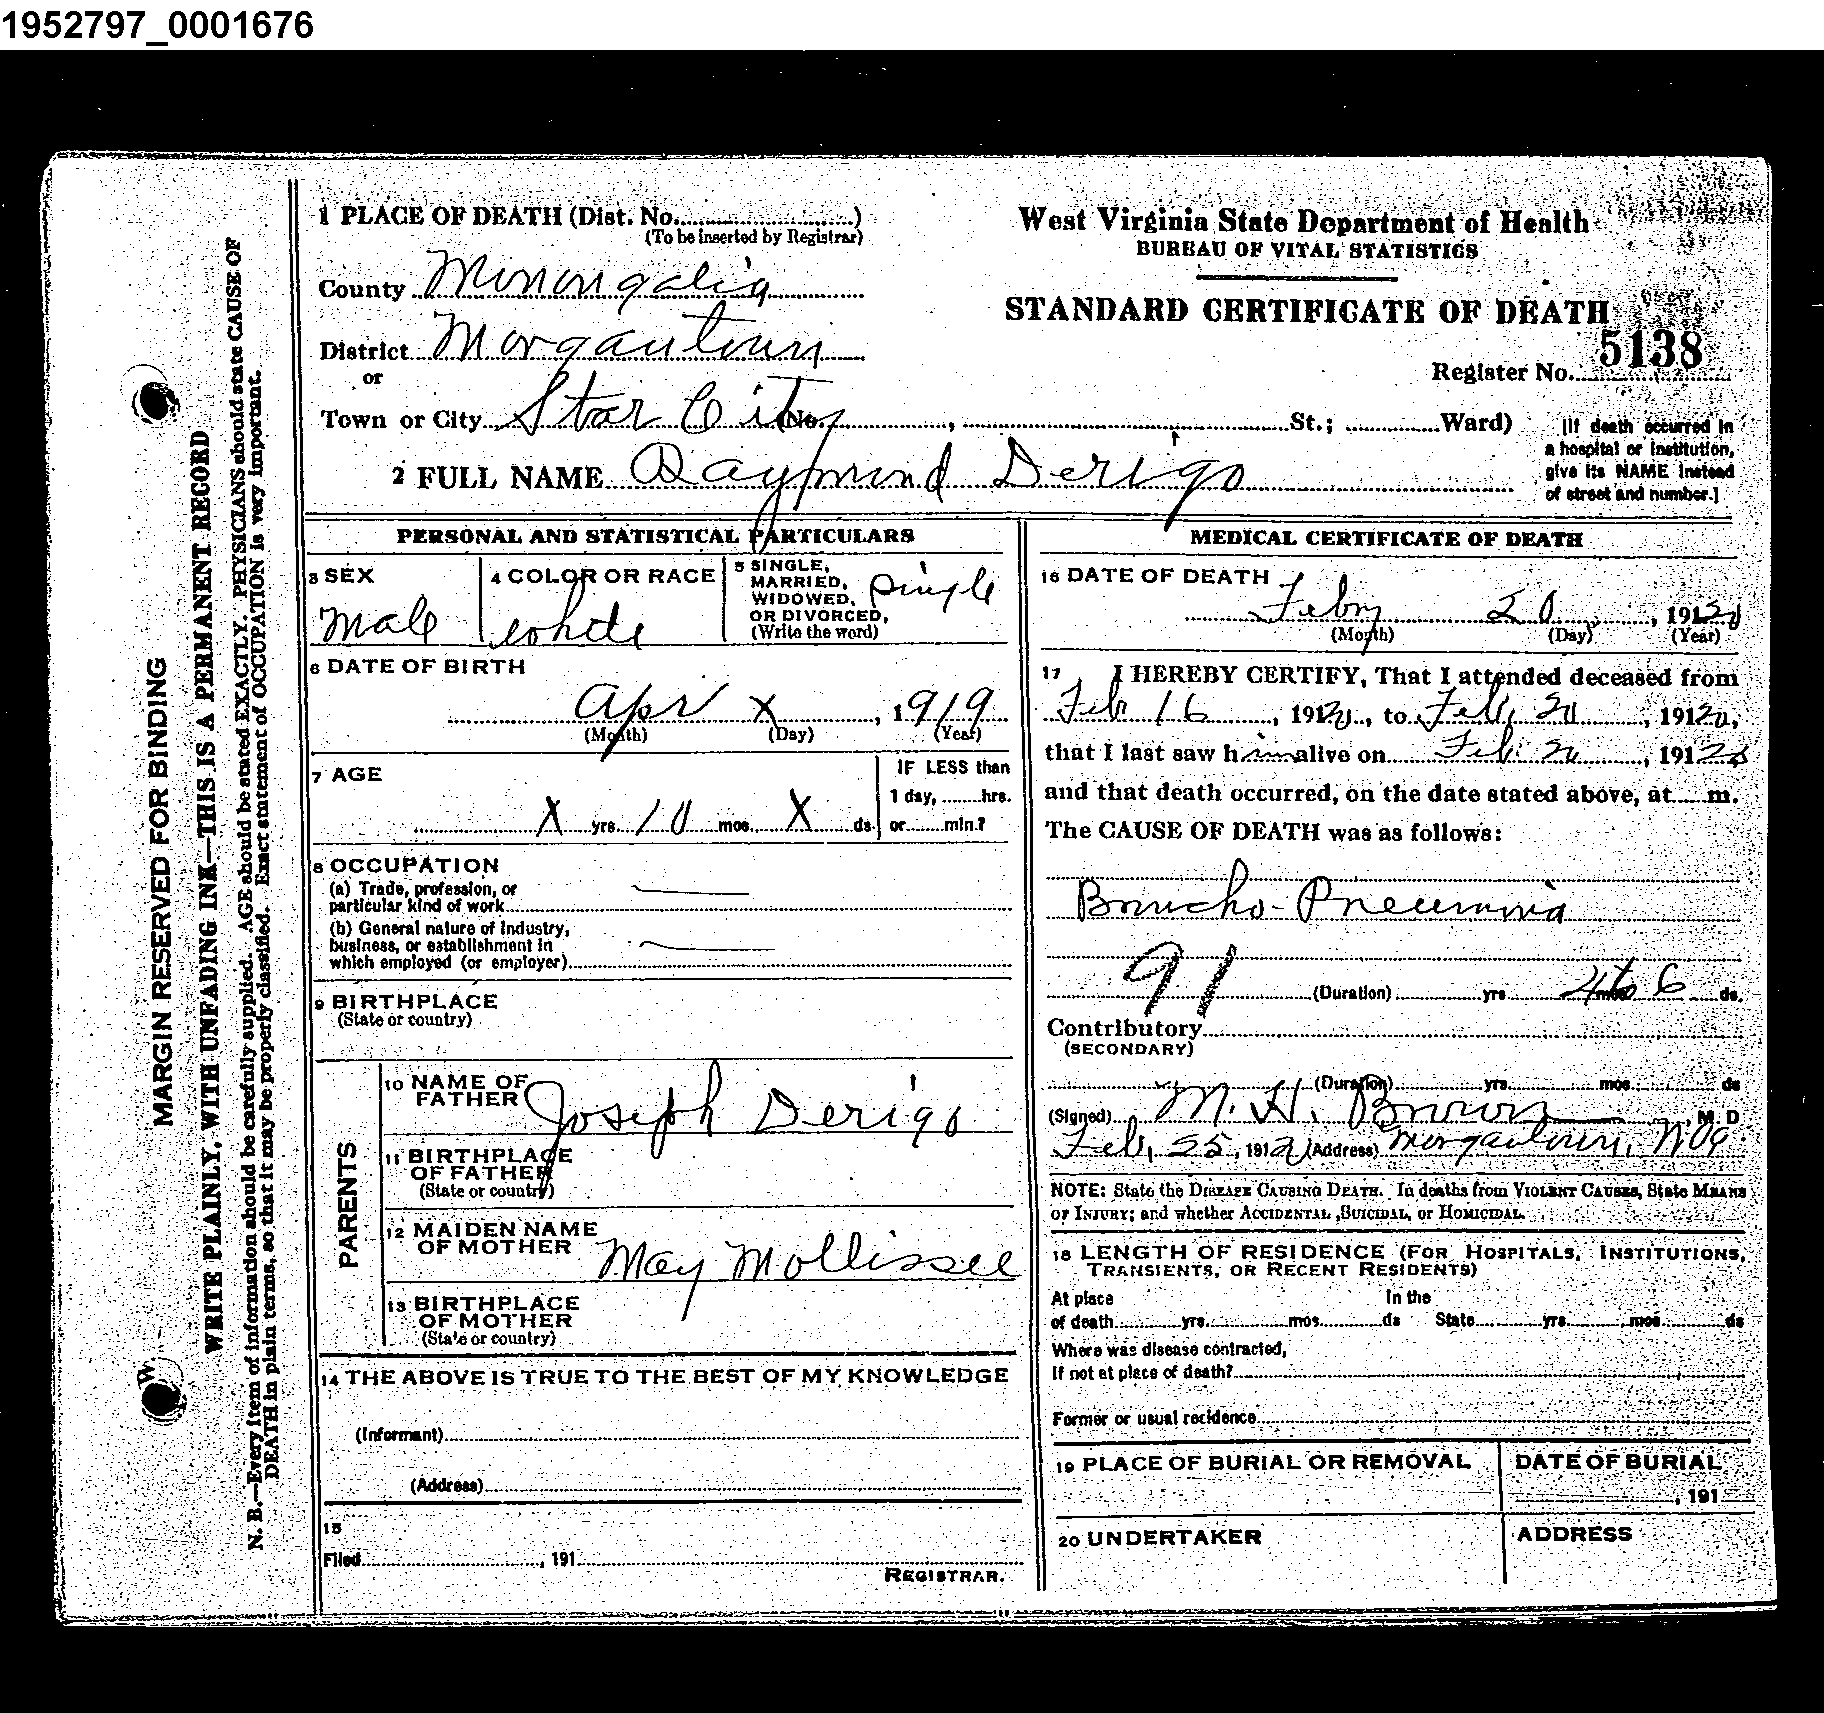 1952797_0001676
MARGIN RESERVED FOR BINDING
WRITE PLAINLY, WITH UNFADING INK—THIS IS A PERMANENT RECORD
N. B.—Every item of information should be carefully supplied. AGE should be stated EXACTLY. PHYSICIANS should state CAUSE OF
DEATH in plain terms, so that it may be properly classified. Exact statement of OCCUPATION is very important.
1 PLACE OF DEATH (Dist. No. )
(To be inserted by Registrar)
County Monongalia
District Morgantown
or
Town or City Star City No. , St.; Ward)
West Virginia State Department of Health
BUREAU OF VITAL STATISTICS
STANDARD CERTIFICATE OF DEATH
Register No. 5138
[If death occurred in
a hospital or institution,
give its NAME instead
of street and number.]
2 FULL NAME Raymond Derigo
PERSONAL AND STATISTICAL PARTICULARS
3 SEX
Male
4 COLOR OR RACE
white
5 SINGLE,
MARRIED,
WIDOWED,
OR DIVORCED,
(Write the word)
single
6 DATE OF BIRTH
Apr X , 1919
(Month) (Day) (Year)
7 AGE
X yrs. 10 mos. X ds.
IF LESS than
1 day, hrs.
or min.?
8 OCCUPATION
(a) Trade, profession, or
particular kind of work
(b) General nature of industry,
business, or establishment in
which employed (or employer)
9 BIRTHPLACE
(State or country)
PARENTS
10 NAME OF
FATHER Joseph Derigo
11 BIRTHPLACE
OF FATHER
(State or country)
12 MAIDEN NAME
OF MOTHER May Mollissee
13 BIRTHPLACE
OF MOTHER
(State or country)
14 THE ABOVE IS TRUE TO THE BEST OF MY KNOWLEDGE
(Informant)
(Address)
15
Filed , 191
REGISTRAR.
MEDICAL CERTIFICATE OF DEATH
16 DATE OF DEATH
Febry 20 , 19120
(Month) (Day) (Year)
17 I HEREBY CERTIFY, That I attended deceased from
Feb 16 , 19120, to Feb. 20 , 19120,
that I last saw him alive on Feb. 20 , 19120
and that death occurred, on the date stated above, at m.
The CAUSE OF DEATH was as follows:
Broncho-Pneumonia
91
(Duration) yrs. mos. 4 to 6 ds.
Contributory
(SECONDARY)
(Duration) yrs. mos. ds
(Signed) M. H. Brown , M D
Feb, 25, 19120 (Address) Morgantown, WVa
NOTE: State the DISEASE CAUSING DEATH. In deaths from VIOLENT CAUSES, State MEANS
OF INJURY; and whether ACCIDENTAL, SUICIDAL, or HOMICIDAL.
18 LENGTH OF RESIDENCE (FOR HOSPITALS, INSTITUTIONS,
TRANSIENTS, OR RECENT RESIDENTS)
At place In the
of death yrs. mos. ds State yrs. mos. ds
Where was disease contracted,
If not at place of death?
Former or usual recidence
19 PLACE OF BURIAL OR REMOVAL
DATE OF BURIAL
, 191
20 UNDERTAKER
ADDRESS